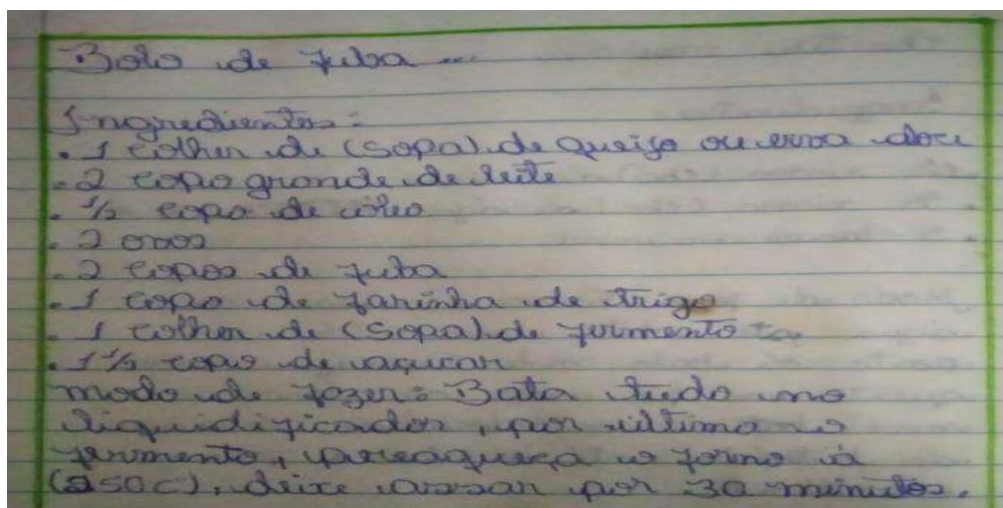 Bolo de fuba ...
Ingredientes:
. 1 colher de (sopa) de queijo ou erva doce
. 2 copo grande de leite
. 1/2 copo de oleo
. 2 ovos
. 2 copos de fuba
. 1 copo de farinha de trigo
. 1 colher de (sopa) de fermento
. 1 1/2 copo de açucar
modo de fazer: Bata tudo no
liquidificador, por ultimo o
fermento, preaqueça o forno à
(250c), deixe assar por 30 minutos.